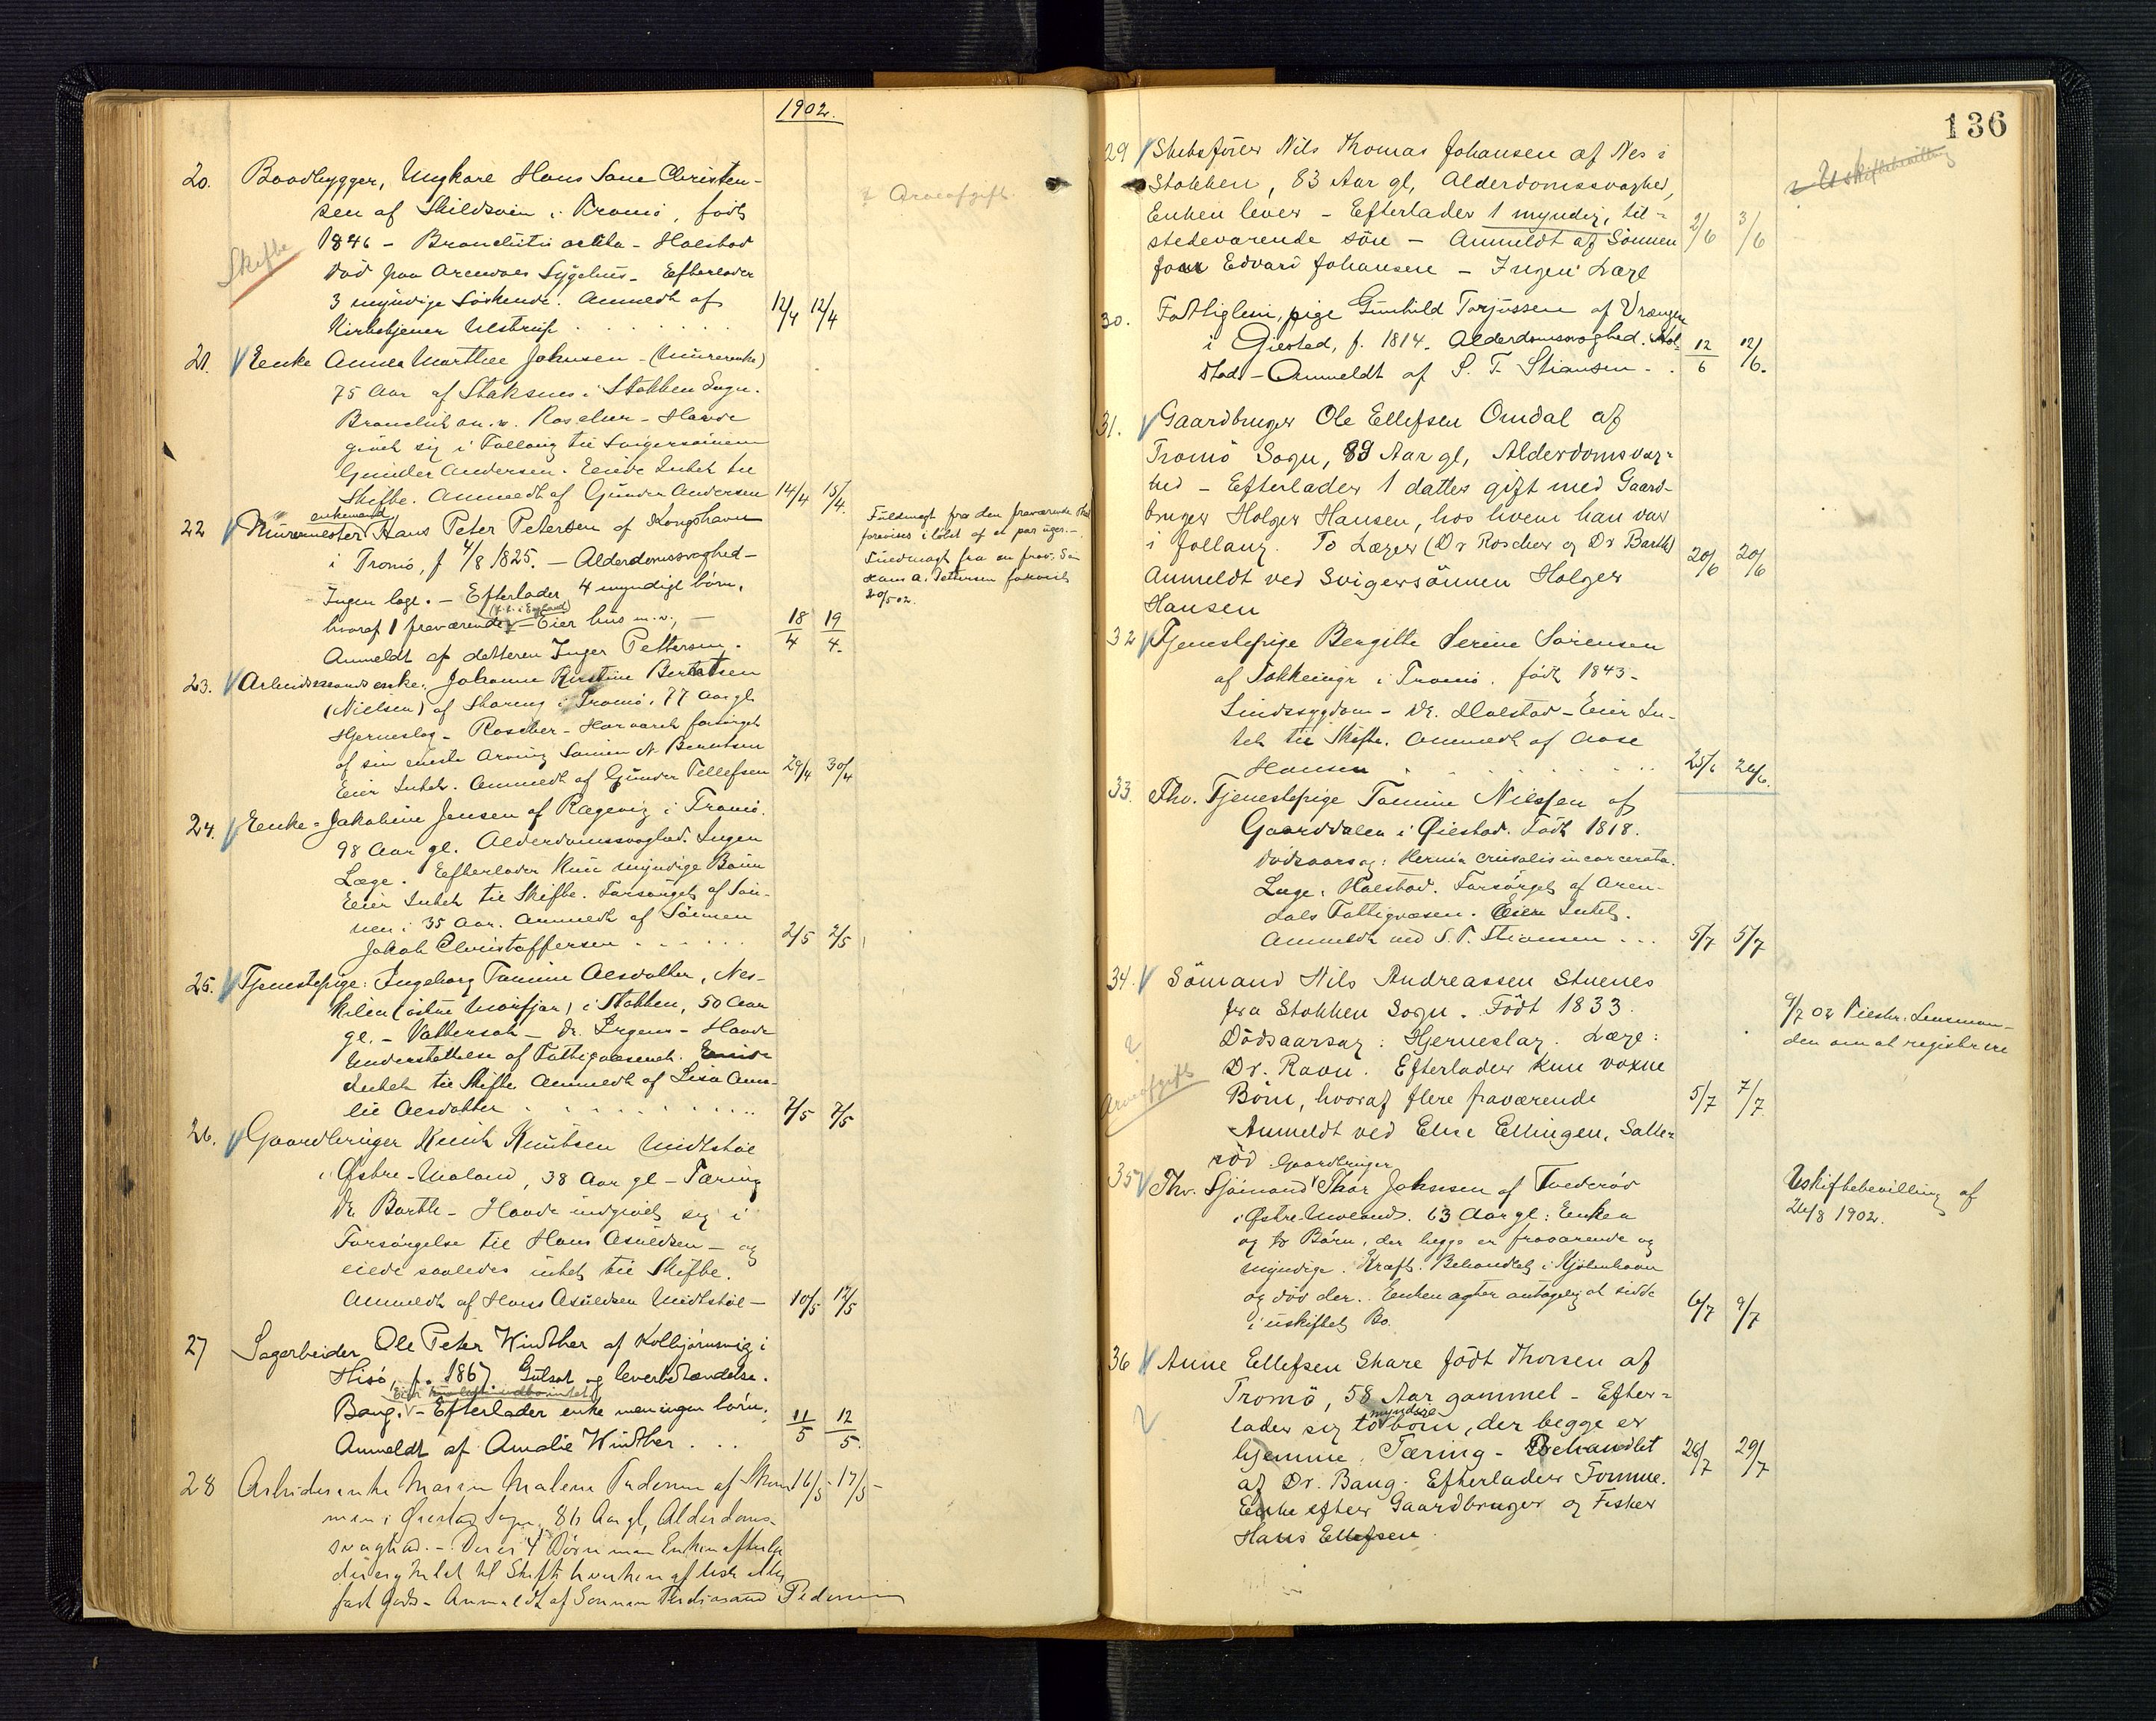 1902.
20. Baadbygger, Ungkarl Hans Sane Christen-
sen af Skildsvin i Tromö, født
1846 - Bronchitis acuta - Holstad
Død paa Arendals Sygehus - Efterlader
3 myndige Söskende. Anmeldt af
Kirketjener Ulstrup 12/4 12/4
Skifte
? Arveafgift.
21. Enke Anna Marthee Johnsen - (Murerenke)
75 Aar af Staksnes i Stokken Sogn.
Bronchit m.v. Roscher - Havde
givet sig i Follaug til Svigersönnen
Gunder Andersen. Eiede Intet til
Skifte. Anmeldt af Gunder Andersen 14/4 15/4.
22 Murermester enkemand Hans Peter Petersen af Kongshavn
i Tromö, f 4/8 1825. - Alderdomssvaghed -
Ingen læge. - Efterlader 4 myndige börn,
hvoraf 1 fraværende (f.t. i England) - Eier hus m.v., -
Anmeldt af datteren Inger Pettersen. 18/4 19/4.
Fuldmagt fra den fraværende skal
forevises i löbet af et par uger. -
Fuldmagt fra en frav. Sön
Hans A. Pettersen forevist
20/5 02.
23. Arbeidsmands enke. Johanne Kirstine Berntsen
(Nielsen) af Skareng i Tromö. 77 Aar gl.
Hjerneslag - Roscher - Har været forsörget
af sin eneste Arving Sönnen N. Berntsen
Eier Intet. Anmeldt af Gunder Tellefsen 29/4 30/4
24. Enke - Jakobine Jensen af Rægevig i Tromö.
98 Aar gl. Alderdomssvaghed. Ingen
Læge. Efterlader kun myndige Börn
Eier Intet til Skifte. Forsörget af Sön-
nen i 35 Aar. Anmeldt af Sönnen
Jakob Christoffersen 2/5 2/5
25. Tjenestepige: Ingeborg Tomine Olesdatter, Nes-
kilen (östre Morfjær) i Stokken, 50 Aar
gl. - Vattersot - Dr. Irgens - Havde
Understöttelse af Fattigvæsenet. Eiede
Intet til Skifte Anmeldt af Lisa Ama-
lie Olesdatter 7/5 7/5
26. Gaardbruger Knut Knutsen Midtstöl
i Östre-Moland, 38 Aar gl - Tæring
Dr Barth - Havde indgivet sig i
Forsörgelse til Hans Asuldsen - og
eiede saaledes intet til Skifte.
Anmeldt af Hans Asuldsen Midtstöl - 10/5 12/5
27 Sagarbeider Ole Peter Winther af Kolbjörnsvig i
Hisö, f. 1867. Gulsot og leverbetændelse.
Bang. - Efterlader enke men ingen börn.
Anmeldt af Amalie Winther . . . 11/5 12/5.
28 Arbeidsenke Maren Malene Pedersen af
i Öiestad Sogn, 86 Aar gl, Alderdoms-
svaghed. - Der er 4 Börn men Enken efterla-
der sig Intet til Skifte hverken af löst eller
fast Gods - Anmeldt af Sönnen Ferdinand Pedersen 16/5 - 17/5 -
136
29 Skibsförer Nils Thomas Johansen af Nes i
Stokken, 83 Aar gl, Alderdomssvaghed,
Enken lever - Efterlader 1 myndig, til-
stedeværende sön - Anmeldt af Sönnen 2/6 3/6
Edvard Johansen - Ingen Læge
? Uskiftebevilling
30. Fattiglem, pige Gunhild Torjussen af Vrængen
i Öiestad, f. 1814. Alderdomssvaghed. Hol-
stad - Anmeldt af S. T. Stiansen - . 12/6 12/6.
31. Gaardbruger Ole Ellefsen Omdal af
Tromö Sogn, 89 Aar gl, Alderdomsvag-
hed - Efterlader 1 datter gift med Gaard-
bruger Holger Hansen, hos hvem han var
i follaug. To Læger (Dr Roscher og Dr Barth) 20/6 20/6
Anmeldt ved Svigersönnen Holger
Hansen
32 Tjenestepige Bergitte Serine Sörensen
af Tokkeinge i Tromö. født 1843 -
Sindssygdom - Dr. Holstad - Eier In-
tet til Skifte. Anmeldt af Aase
Hansen 25/6 26/6.
33. Fhv. Tjenestepige Tomine Nielsen af
Gaarddalen i Öiestad. Född 1818.
Dödsaarsag: Hernia cruralis incarcerata.
Læge: Holstad. Forsörget af Aren-
dals Fattigvæsen. Eier Intet.
Anmeldt ved S. T. Stiansen . . . 5/7 5/7
34. Sömand Nils Andreassen Stuenes
fra Stokken Sogn. Födt 1833.
Dödsaarsag: Hjerneslag. Læge:
Dr. Ravn. Efterlader kun voxne
Börn, hvoraf flere fraværende 5/7 7/7
Anmeldt ved Elise Ellingsen, Salte-
röd
? Arveafgift
9/7 02 Tilskr. Lensman-
den om at registrere
35 Fhv. Sjömand Gaardbruger Thor Johnsen af Tvederöd
i Östre-Moland. 63 Aar gl: Enken
og to Börn, der begge er fraværende og
myndige. Kræft. Behandlet i Kjöbenhavn
og död der. Enken agter antagelig at sidde
i uskiftet Bo. 6/7 9/7
Uskiftebevilling af
26/8 1902.
36 Anne Ellefsen Skare födt Thorsen af
Tromö, 58 Aar gammel - Efter-
lader sig to myndige börn, der begge er
hjemme. Tæring - Behandlet 28/7 29/7
af Dr. Bang. Efterlader Formue.
Enke efter Gaardbruger og Fisker
Hans Ellefsen.